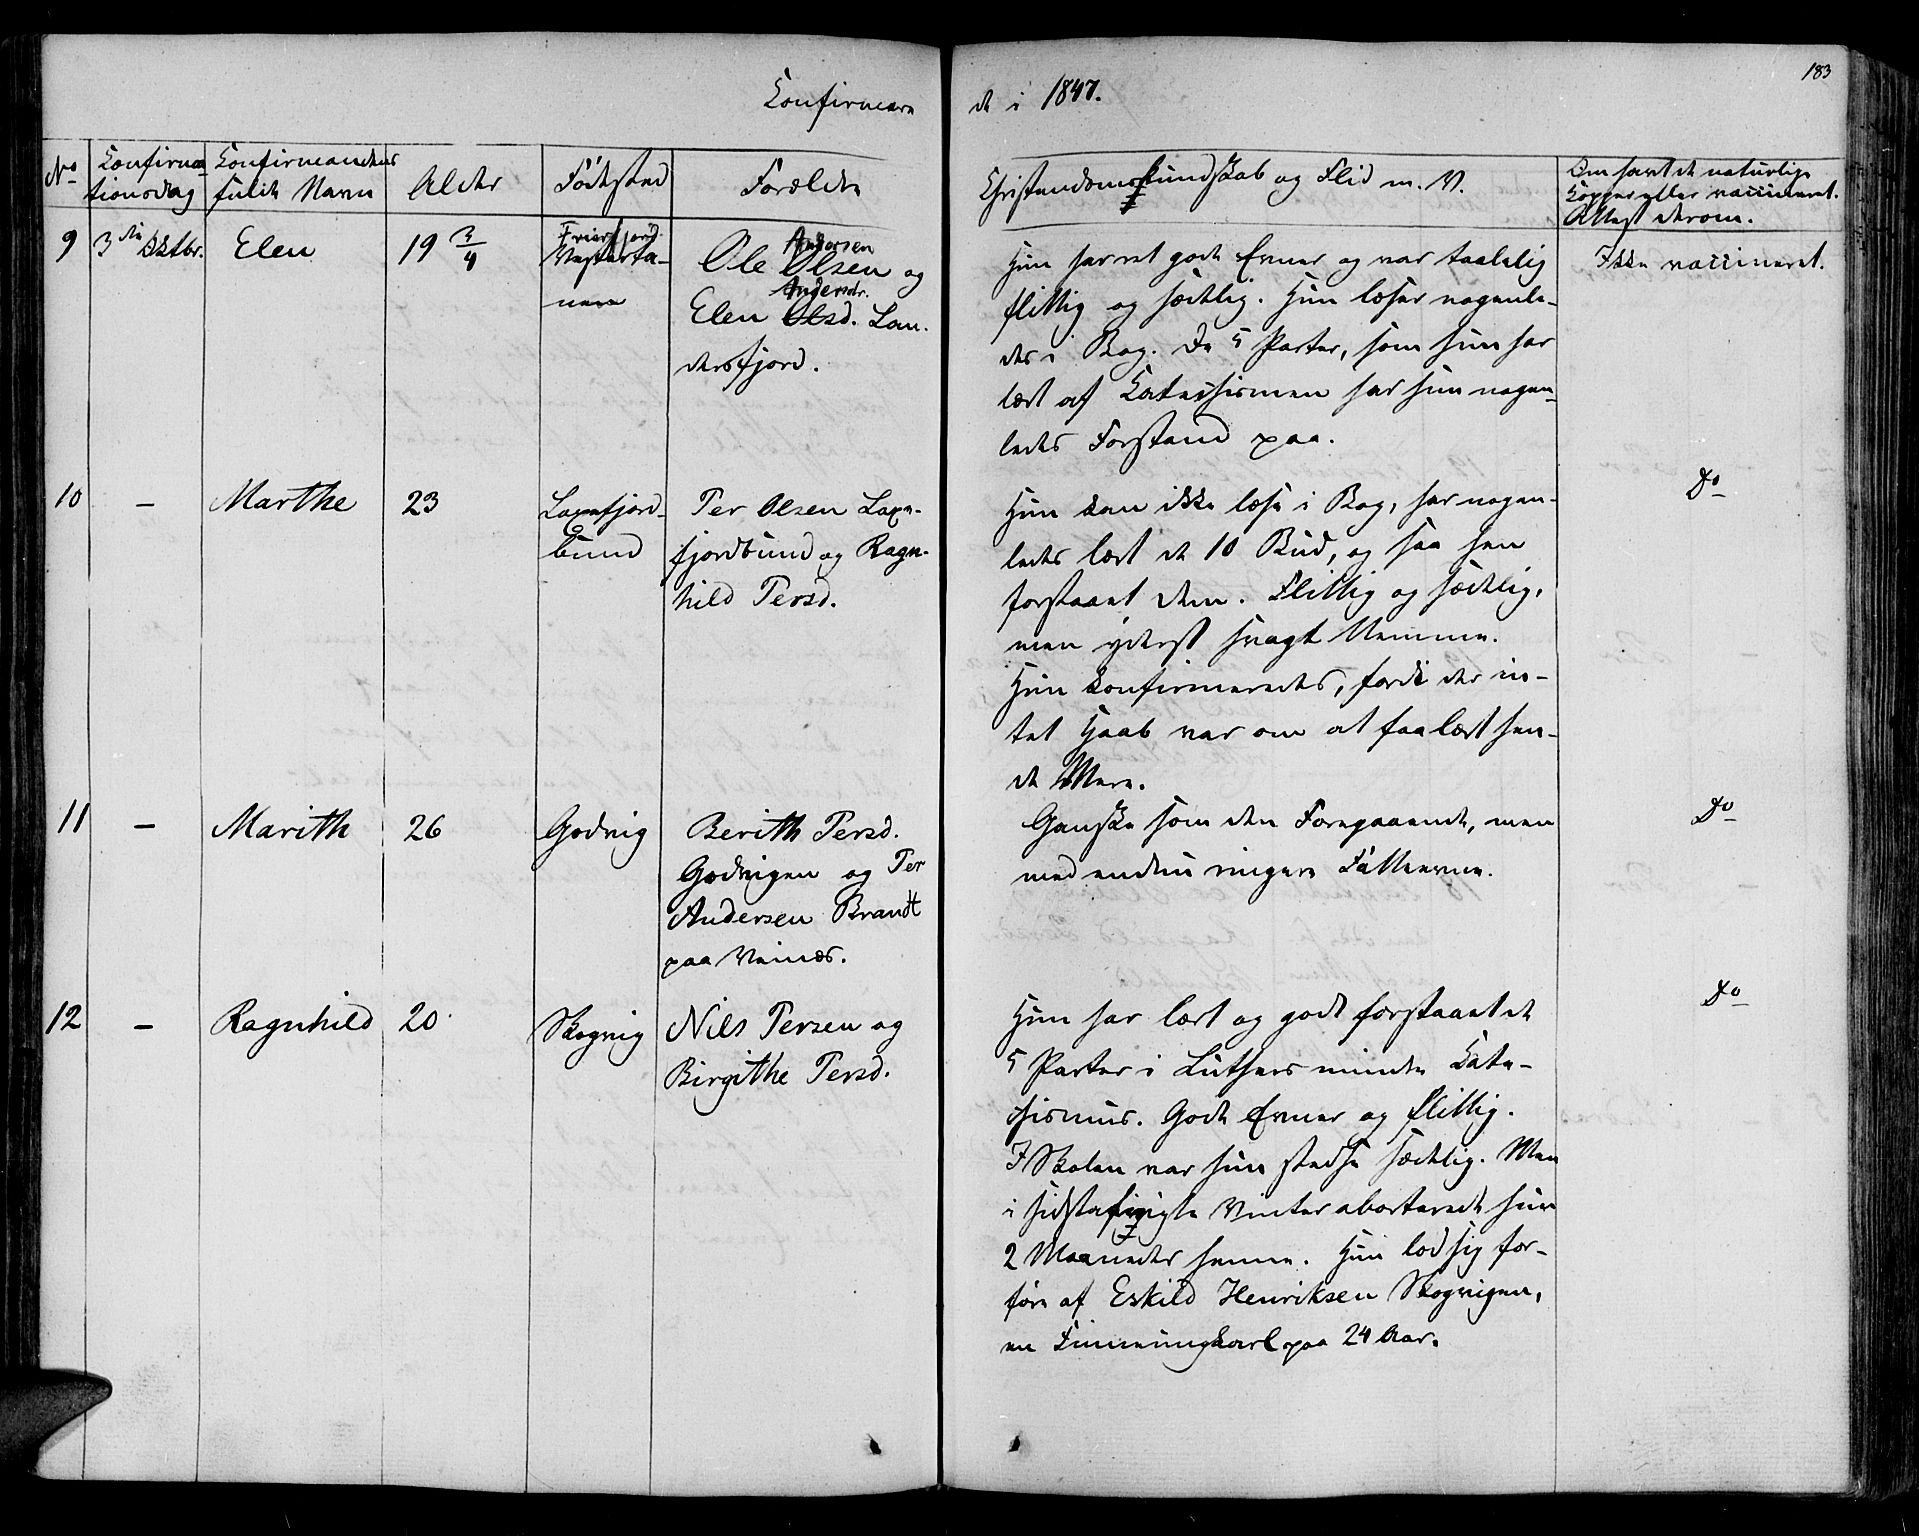 183
Confirmere
de i 1847.
No
Confirma-
tionsdag
Confirmandens
fulde Navn
Alder
Fødested
Forældre
Christendomskundskab og Flid m. V.
Om havt de naturlige
Kopper eller vaccineret.
Attest derom.
9
3die Oktbr.
Elen
19 3/4
Friersfjord
Vesterta-
nere
Andersen
Ole Olsen og
Andersdr.
Elen Olsd. Lan-
dersfjord.
Hun havet gode Evner og var taalelig
flittig og sædelig. Hun læser nogenle-
des i Bog. De 5 Parter, som hun har
lært af Katechismen har hun nogen-
ledes Forstand paa.
Ikke vaccineret.
10
-
Marthe
23
Laxefjord-
bund
Per Olsen Laxe-
fjordbund og Ragn-
hild Persd.
Hun kan ikke læse i Bog, har nogen-
ledes lært de 10 Bud, og saa hen
forstaaet dem. Flittig og sædelig,
men yderst svagt Nemme.
Hun konfirmeredes, fordi der in-
tet Haab var om at faa lært hen-
de Mere.
Do
11
-
Marith
26
Godvig
Berith Persd.
Godvigen og Per
Andersen Brandt
paa Veines.
Ganske som den Foregaaende, men
med endnu ringere Fatteevne.
Do
12
-
Ragnhild
20
Skogvig
Nils Persen og
Birgithe Persd.
Hun har lært og godt forstaaet de
5 Parter i Luthers mindre Kate-
chismus. Gode Evner og flittig.
I Skolen var hun stedse sædelig. Men
i sidstafvigte Vinter aborterede hun
2 Maaneder henne. Hun lod sig for-
føre af Eskild Henriksen Skogvigen,
en Finneungkarl paa 24 Aar.
Do